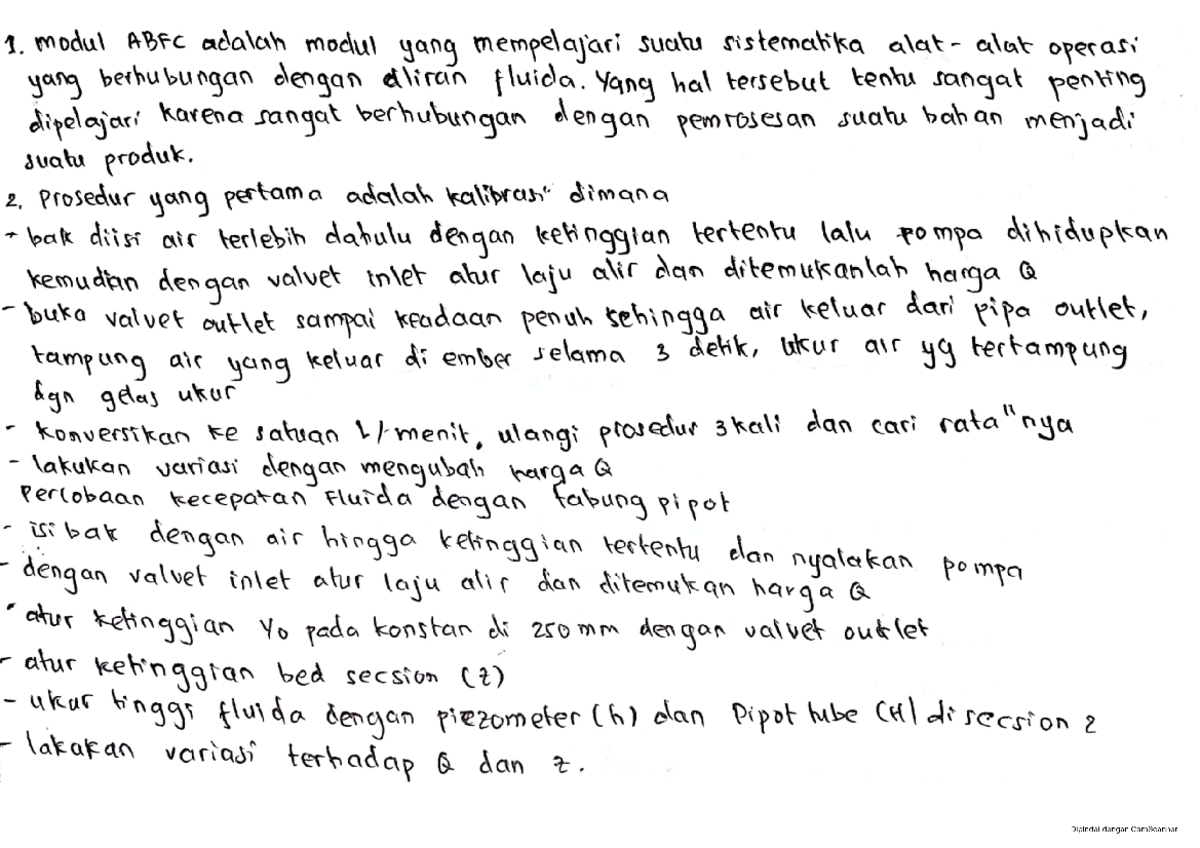 1. modul ABFC adalah modul yang mempelajari suatu sistematika alat-alat operasi
yang berhubungan dengan aliran fluida. Yang hal tersebut tentu sangat penting
dipelajari karena sangat berhubungan dengan pemrosesan suatu bahan menjadi
suatu produk.
2. Prosedur yang pertama adalah kalibrasi dimana
- bak diisi air terlebih dahulu dengan ketinggian tertentu lalu pompa dihidupkan
kemudian dengan valvet inlet atur laju alir dan ditemukanlah harga Q
- buka valvet outlet sampai keadaan penuh sehingga air keluar dari pipa outlet,
tampung air yang keluar di ember selama 3 detik, ukur air yg tertampung
dgn gelas ukur
- konversikan ke satuan L/menit, ulangi prosedur 3 kali dan cari rata"nya
- lakukan variasi dengan mengubah harga Q
Percobaan kecepatan Fluida dengan tabung pipot
- isi bak dengan air hingga ketinggian tertentu dan nyalakan pompa
- dengan valvet inlet atur laju alir dan ditemukan harga Q
- atur ketinggian Yo pada konstan di 250 mm dengan valvet outlet
- atur ketinggian bed secsion (z)
- ukur tinggi fluida dengan piezometer (h) dan Pipot tube (H) di secsion 2
- lakakan variasi terhadap Q dan z.
Dipindai dengan CamScanner